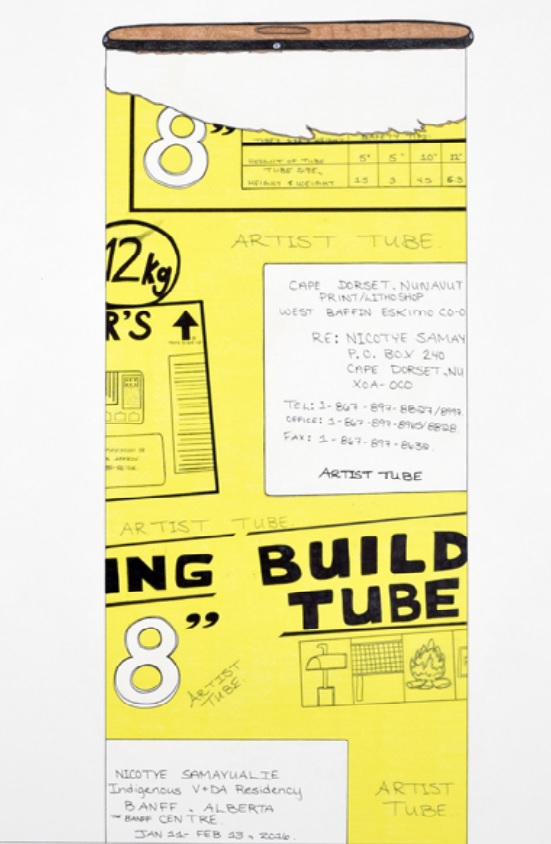 8"
HEIGHT OF TUBE 5" 5" 10" 12"
TUBE SIZE,
HEIGHT & WEIGHT 1.5 3 4.5 6.3
12kg
ARTIST TUBE.
R'S
CAPE DORSET, NUNAVUT
PRINT/LITHO SHOP
WEST BAFFIN ESKIMO CO-O
RE: NICOTYE SAMAY
P.O. BOX 240
CAPE DORSET, NU
X0A-0C0
TEL: 1-867-897-8827/8997.
OFFICE: 1-867-897-8965/8828.
FAX: 1-867-897-8630.
ARTIST TUBE
ARTIST TUBE.
ING BUILD
TUBE
8"
ARTIST
TUBE.
NICOTYE SAMAYUALIE
Indigenous V+DA Residency
BANFF, ALBERTA
THE BANFF CENTRE.
JAN 11- FEB 13, 2016.
ARTIST
TUBE